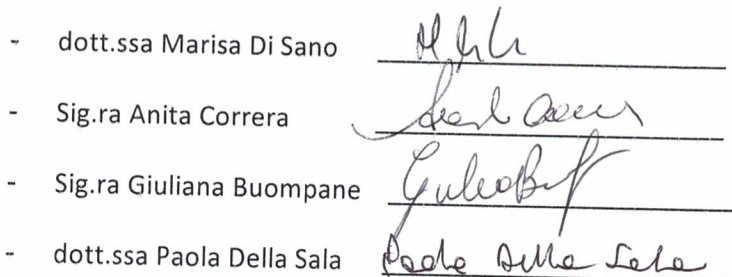 - dott.ssa Marisa Di Sano
- Sig.ra Anita Correra
- Sig.ra Giuliana Buompane
- dott.ssa Paola Della Sala Paola Della Sala